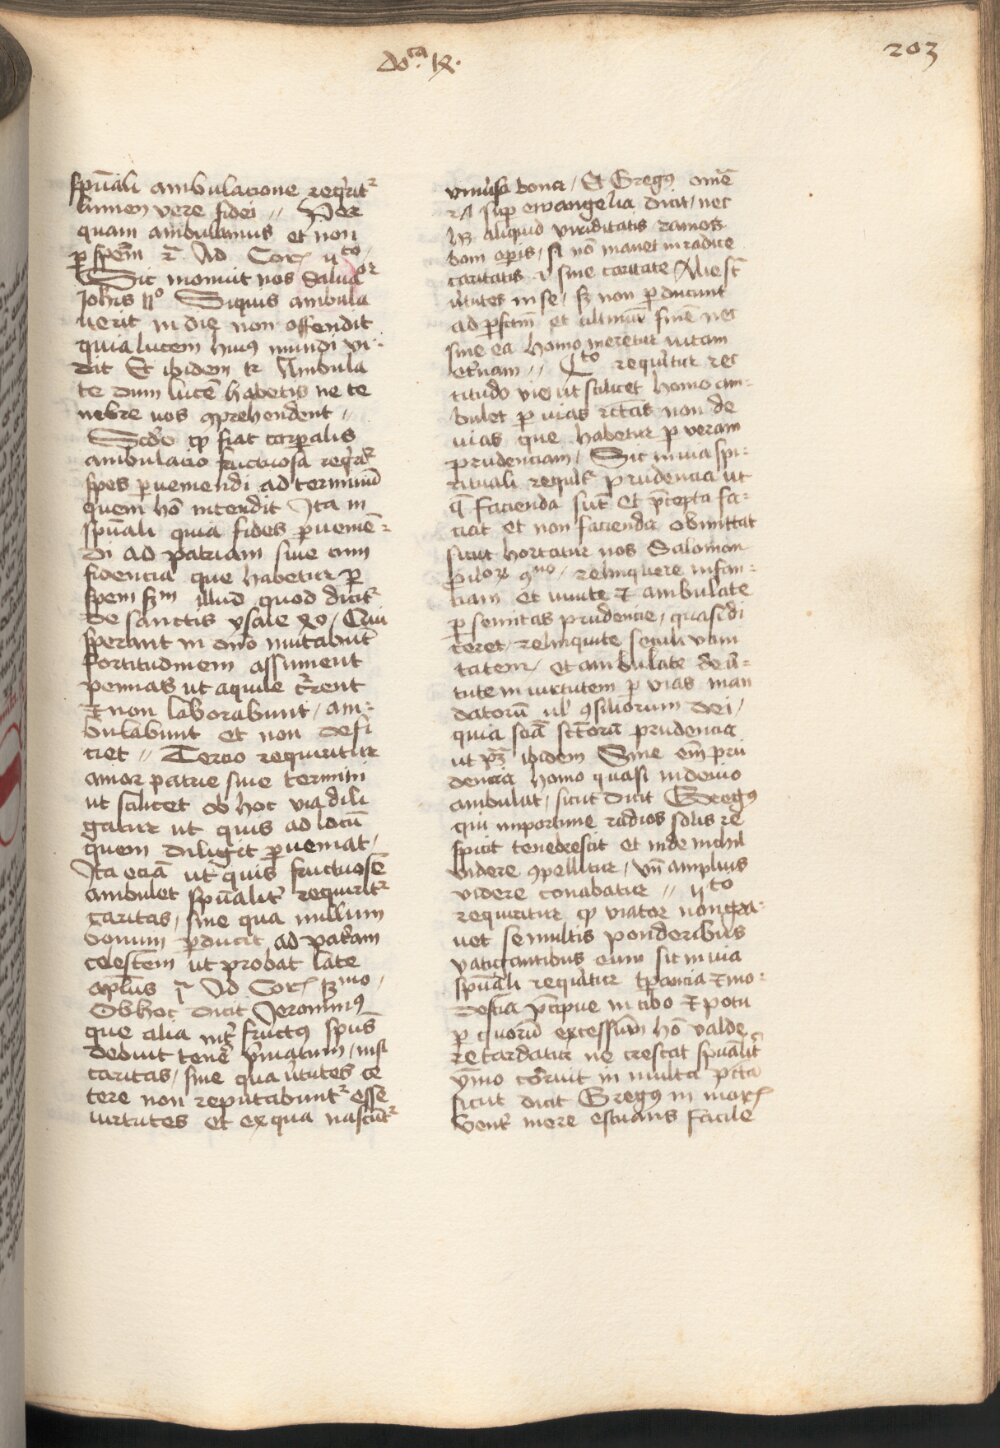 doca. ix.
203
spūali ambulacione reqͥritᷣ
lumen vere fidei // Per
quam ambulamus et non
ꝑ spēm ·2· Ad Corͣ vto
Sic monuit nos Saluator
Johīs 110 Siquis ambula
uerit in die non offendit
quia lucem huiꝰ mundi vi-
dit Et ibidem Ambula
te dum lucē habetis ne te
nebre vos ꝯprehendent //
Scdo ꝙ fiat corꝑalis
ambulacio fructuosa reqͥrᷣ
spes ꝑueniendi ad terminū
quem hō intendit Ita in
spūali quia fides ꝑueniē-
di ad patriam siue cum
fidencia que habetur ꝑ
spem scdm illud quod dicitᷣ
de sanctis ysaie xlo / Qui
sperant in dno mutabunt
fortitudinem assument
pennas ut aquile current
et non laborabunt / am-
bulabunt et non defi
cient // Tercio requiritur
amor patrie siue termini
ut scilicet ob hoc via dili
gatur ut quis ad locū
quem diligit ꝑueniat /
Ita eciā ut quis fructuose
ambulet spūalitͬ requiritᷣ
caritas / sine qua nullum
bonum ꝑducit ad patͥam
celestem ut probat late
aplus i Ad Corͣ xiiimo /
Ob hoc dicit Jeronimꝰ
que alia intͬ fructꝰ spūs
debuit tenē pͥmatum / nisi
caritas / sine qua vtutes ce
tere non reputabuntᷣ esse
virtutes et ex qua nascūtᷣ
vniusa bona / Et Gregꝰ omē
sup ewangelia dicit / nec
hꝫ aliquid viriditatis ramos
boni opis / si nō manet in radice
caritatis sine caritate
vtutes in se / sꝫ non ꝑducunt
ad ꝑfctm̄ et vltimū finē nec
sine ea homo meretur vitam
etnam // Qto requiritur rec
titudo vie ut scilicet homo am-
bulet ꝑ vias rectas non de
uias que habetur ꝑ veram
prudenciam / Sic in via spi-
rituali requirᷣ prudencia ut
q̄ facienda sūt et pͨcepta fa-
ciat et non facienda obmittat
sicut hortatur nos Salomon
ꝓuōꝝ 9no / relinquere infan-
ciam et viuite et ambulate
ꝑ semitas prudencie / quasi di
ceret / relinquite seculi vani
tatem / et ambulate de v-
tute in virtutem ꝑ vias man
datorū ul' ꝯsiliorum dei /
quia scia sctorū prudencia
ut pꝫ ibidem Sine em̄ pru
dencia homo quasi in deuio
ambulat / sicut dicit Gregꝰ
qui importune radios solis re
spicit tenebrescit et inde nichil
videre ꝯpellitur / vn̄ amplius
videre conabatur // vto
requiritur ꝙ viator non gra-
uet se multis ponderibus
vatigantibus eum sic in via
spūali requiritur tꝑancia et mo-
destia pͨcipue in cibo et potu
ꝑ quorū excessum hō valde
retardatur ne crescat spūalitͬ
ymo corruit in multa pctā
sicut dicit Gregꝰ in morͣ
Ventͬ mere estuans facile